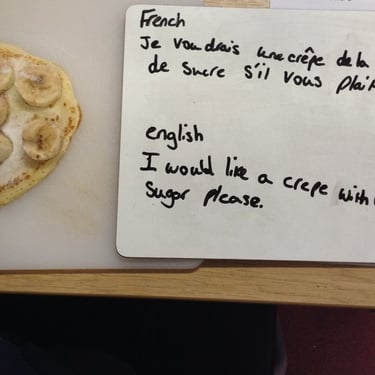 French
Je voudrais une crêpe de la
de sucre s'il vous plaît
english
I would like a crepe with
Sugar please.